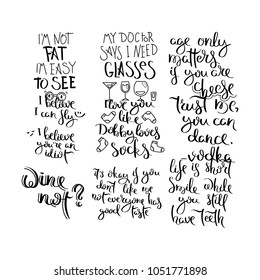 I'M NOT
FAT
I'M EASY
TO SEE
I believe
I can fly
I believe
you're an
idiot
Wine
not?
MY DOCTOR
SAYS I NEED
GLASSES
I love you
like
Dobby loves
socks
it's okay if you
don't like me
not everyone has
good taste
age only
matters
if you are
cheese
trust me,
you can
dance.
vodka
life is short
smile while
you still
have teeth
shutterstock.com · 1051771898